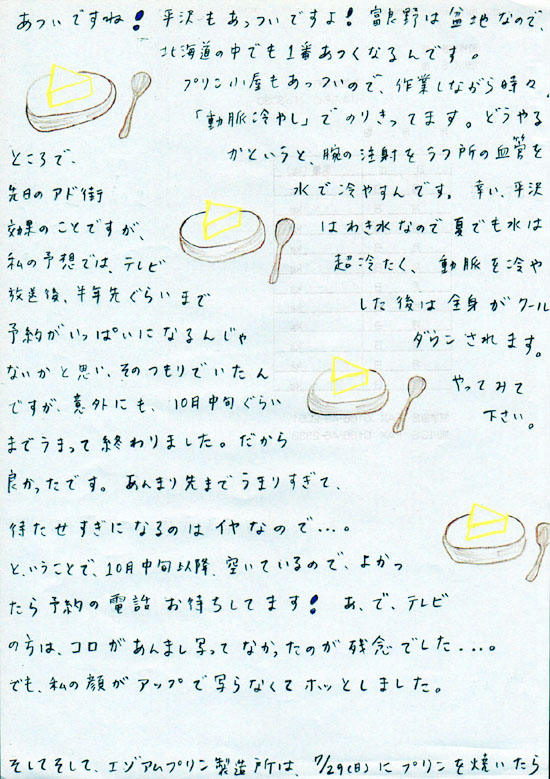 あついですね! 平沢もあっついですよ! 富良野は盆地なので、
北海道の中でも1番あつくなるんです。
プリン小屋もあっついので、作業しながら時々、
「動脈冷やし」でのりきってます。どうやる
かというと、腕の注射をうつ所の血管を
水で冷やすんです。幸い、平沢
はわき水なので夏でも水は
超冷たく、動脈を冷や
した後は全身がクール
ダウンされます。
やってみて
下さい。
ところで、
先日のアド街
効果のことですが、
私の予想では、テレビ
放送後、半年先ぐらいまで
予約がいっぱいになるんじゃ
ないかと思い、そのつもりでいたん
ですが、意外にも、10月中旬ぐらい
までうまって終わりました。だから
良かったです。あんまり先までうまりすぎて、
待たせすぎになるのはイヤなので…。
ということで、10月中旬以降、空いているので、よかっ
たら予約の電話お待ちしてます! あ、で、テレビ
の方は、コロがあんまし写ってなかったのが残念でした...。
でも、私の顔がアップで写らなくてホッとしました。
そしてそして、エゾアムプリン製造所は、7/29(日)にプリンを焼いたら